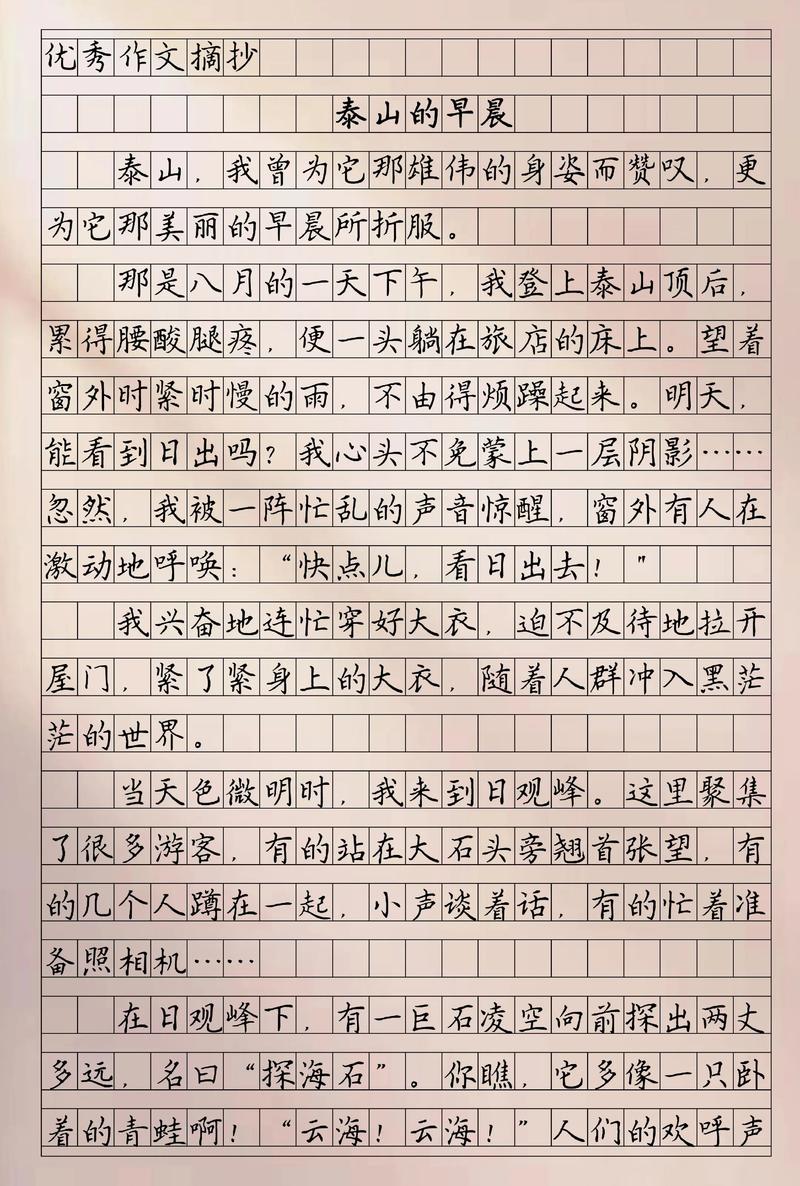 优秀作文摘抄
泰山的早晨
泰山，我曾为它那雄伟的身姿而赞叹，更
为它那美丽的早晨所折服。
那是八月的一天下午，我登上泰山顶后，
累得腰酸腿疼，便一头躺在旅店的床上。望着
窗外时紧时慢的雨，不由得烦躁起来。明天，
能看到日出吗？我心头不免蒙上一层阴影……
忽然，我被一阵忙乱的声音惊醒，窗外有人在
激动地呼唤：“快点儿，看日出去！"
我兴奋地连忙穿好大衣，迫不及待地拉开
屋门，紧了紧身上的大衣，随着人群冲入黑茫
茫的世界。
当天色微明时，我来到日观峰。这里聚集
了很多游客，有的站在大石头旁翘首张望，有
的几个人蹲在一起，小声谈着话，有的忙着准
备照相机……
在日观峰下，有一巨石凌空向前探出两丈
多远，名曰“探海石”。你瞧，它多像一只卧
着的青蛙啊！“云海！云海！”人们的欢呼声